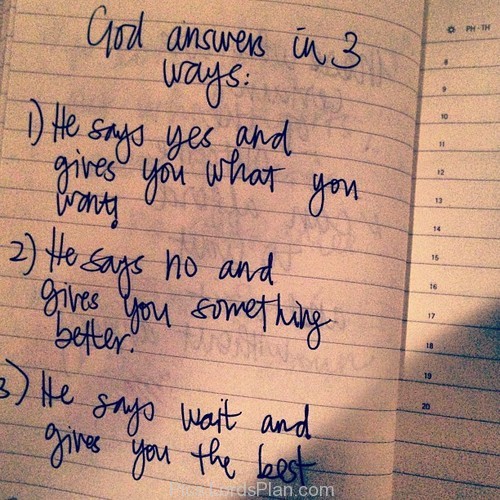 God answers in 3
ways:
1) He says yes and
gives you what you
want!
2) He says no and
gives you something
better.
3) He says wait and
gives you the best
PH - TH
8
9
10
11
12
13
14
15
16
17
18
19
20
LordsPlan.com